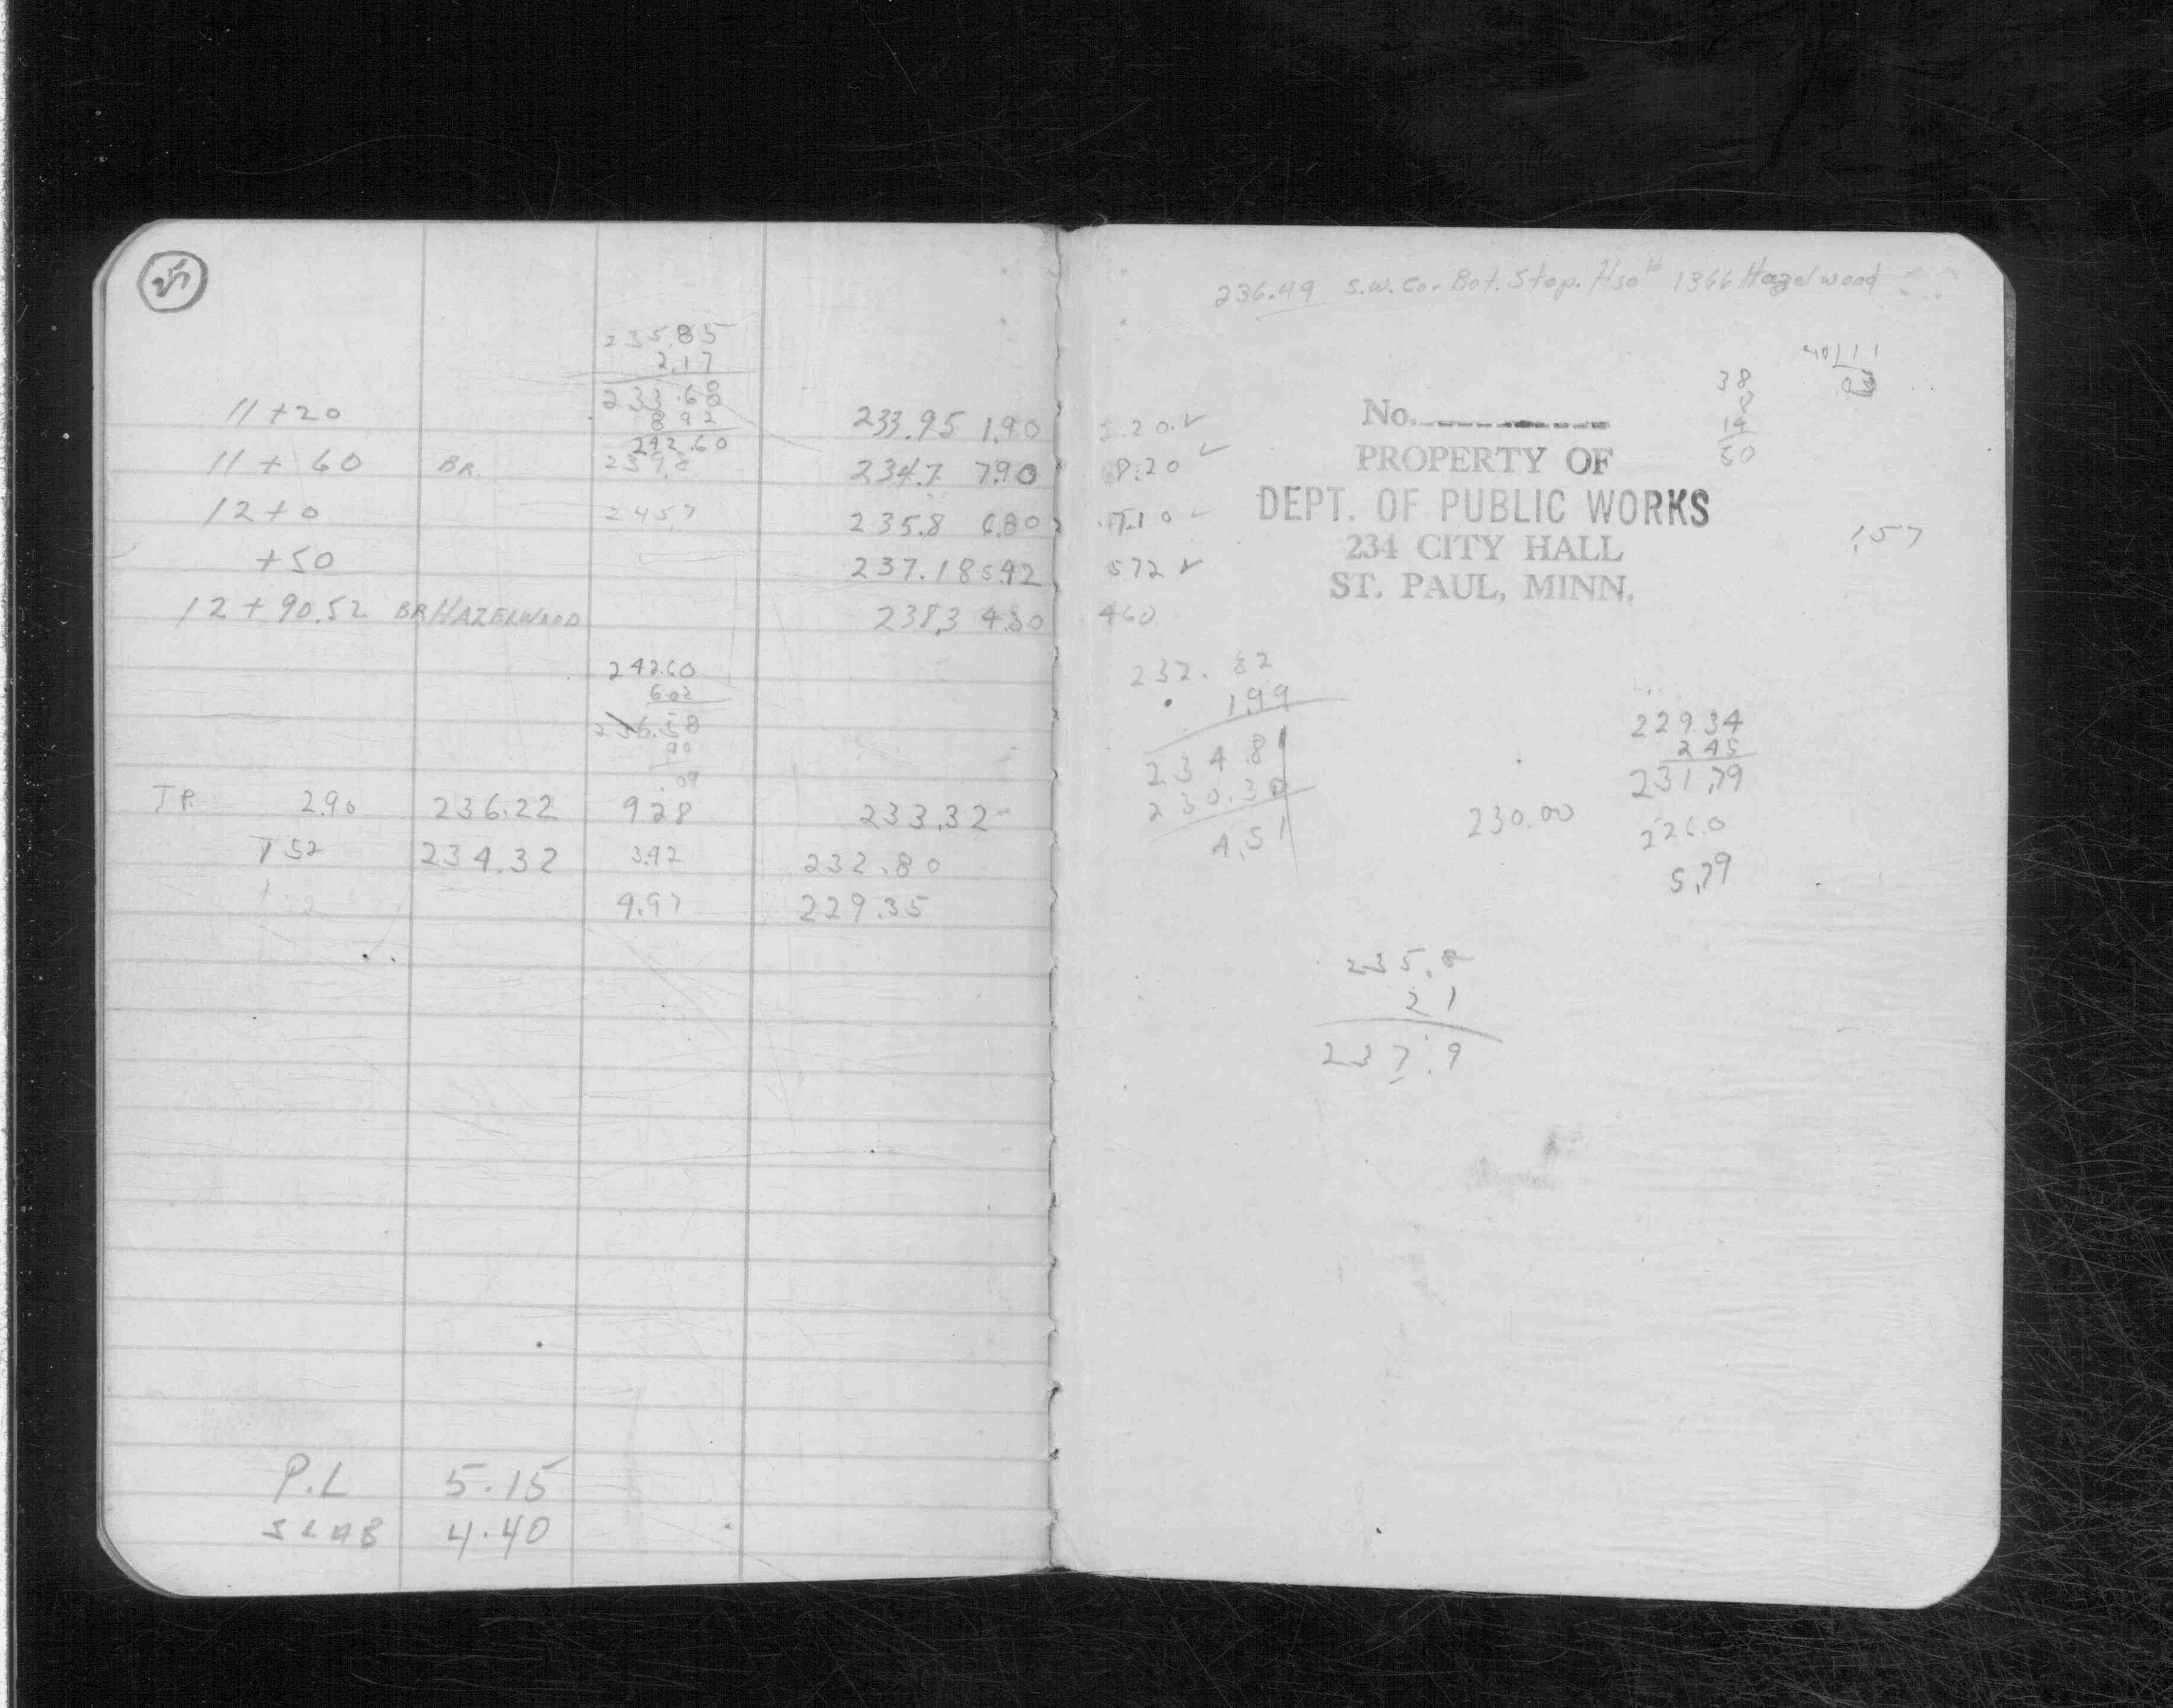 25
23585
2.17
233.68
8 92
242.60
11 +20 233.95 1.90
11 + 60 BR. 237.8 234.7 7.90
12 + 0 245.7 235.8 6.80
+50 237.18 5.42
12 + 90.52 BR HAZELWOOD 238.3 4.30
242.60
6.02
236.58
90
.09
T P. 2.90 236.22 928 233.32
1 52 234.32 3.42 232.80
9.97 229.35
P.L 5.15
SLAB 4.40
236.49 S.W. Co. Bot. Stop. Hse 1366 Hazelwood
38
14
60
No.
PROPERTY OF
DEPT. OF PUBLIC WORKS
234 CITY HALL
ST. PAUL, MINN.
2.20 ✓
8.20 ✓
7.10 ✓
572 ✓
460
.157
232.82
1.99
234.81
230.30
4.51
230.00
229.34
2 45
231.79
226.0
5.79
235.8
2 1
237.9